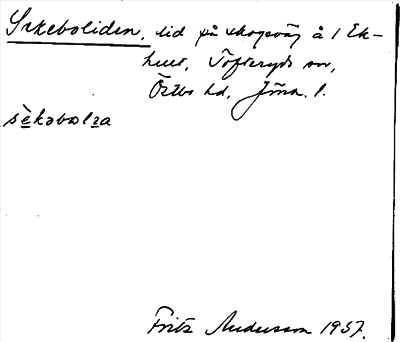 Sekeboliden, lid på skogsväg å 1 Ek-
hult, Tofteryds sn,
Östbo hd, Jönk. l.
sèkəbωlıa
Fritz Andersson 1937.